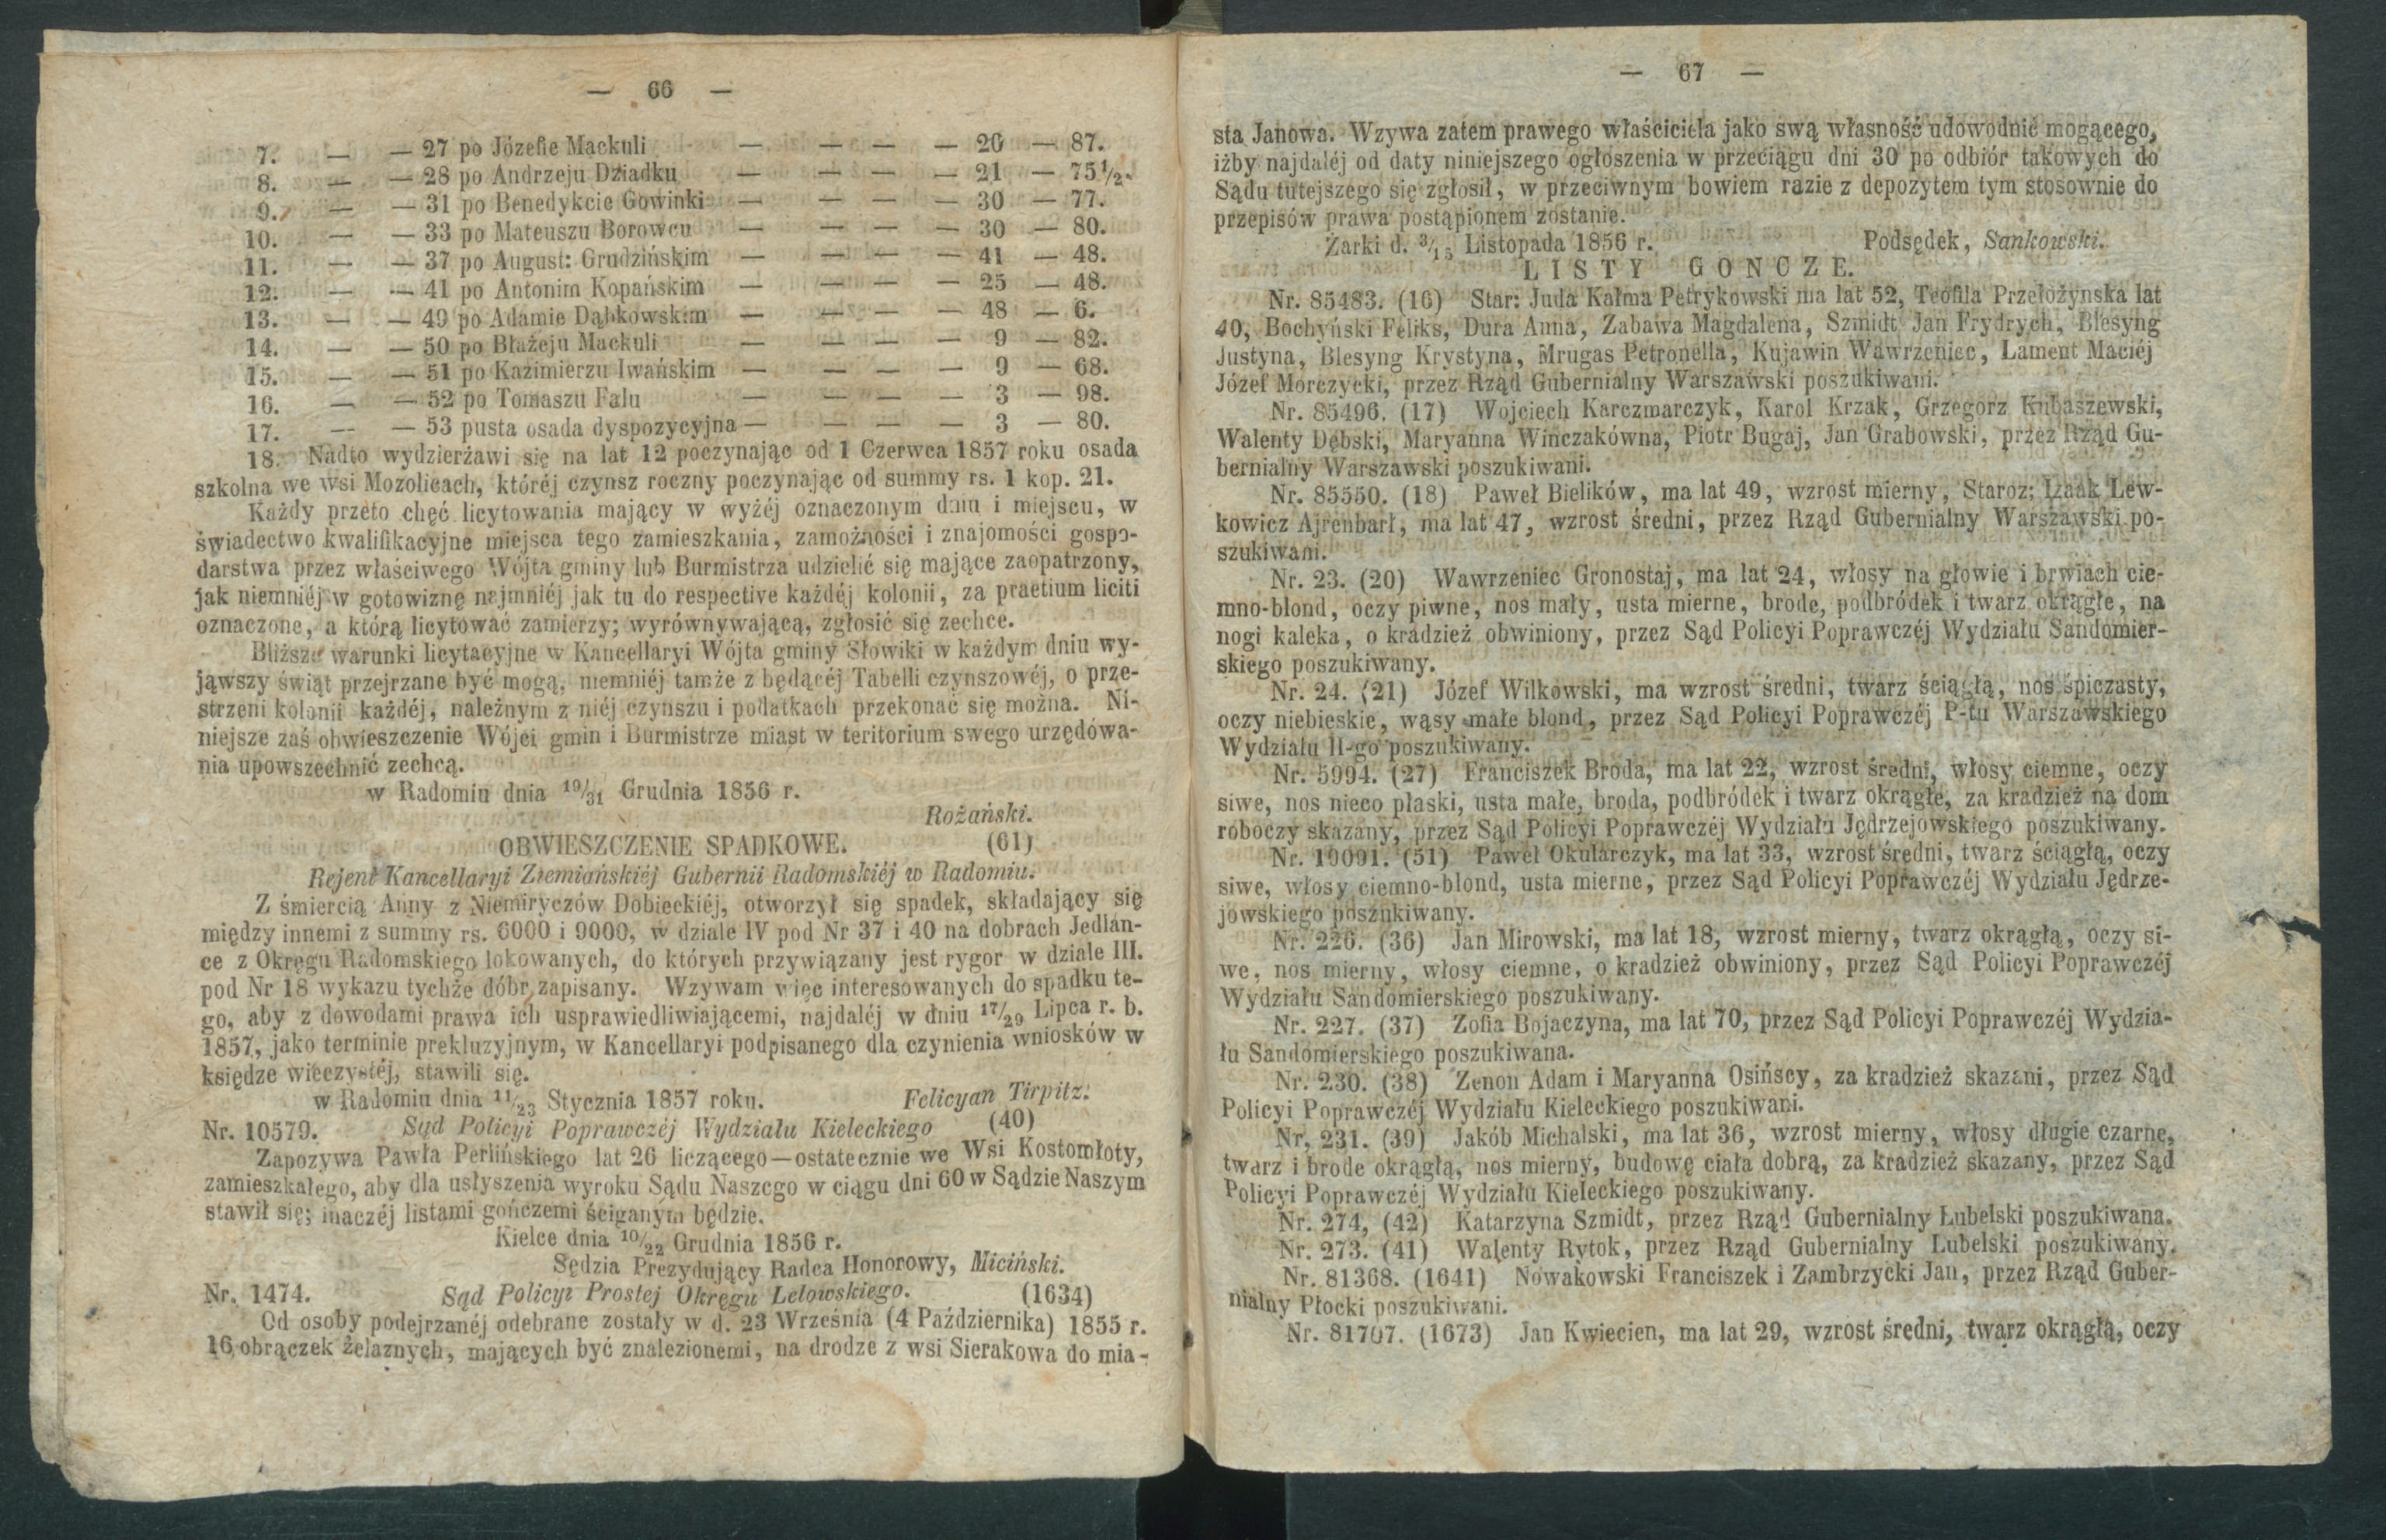 — 66 —
7. — — 27 po Józefie Mackuli — — — — 26 — 87.
8. — — 28 po Andrzeju Dziadku — — — — 21 — 75½.
9. — — 31 po Benedykcie Gowinki — — — — 30 — 77.
10. — — 33 po Mateuszu Borowcu — — — — 30 — 80.
11. — — 37 po August: Grudzińskim — — — — 41 — 48.
12. — — 41 po Antonim Kopańskim — — — — 25 — 48.
13. — — 49 po Adamie Dąbkowskim — — — — 48 — 6.
14. — — 50 po Błażeju Mackuli — — — — 9 — 82.
15. — — 51 po Kazimierzu Iwańskim — — — — 9 — 68.
16. — — 52 po Tomaszu Falu — — — — 3 — 98.
17. — — 53 pusta osada dyspozycyjna — — — — 3 — 80.
18. Nadto wydzierżawi się na lat 12 poczynając od 1 Czerwca 1857 roku osada
szkolna we wsi Mozolicach, któréj czynsz roczny poczynając od summy rs. 1 kop. 21.
Każdy przeto chęć licytowania mający w wyżéj oznaczonym dniu i miejscu, w
świadectwo kwalifikacyjne miejsca tego zamieszkania, zamożności i znajomości gospo-
darstwa przez właściwego Wójta gminy lub Burmistrza udzielić się mające zaopatrzony,
jak niemniéj w gotowiznę najmniéj jak tu do respective każdéj kolonii, za praetium liciti
oznaczone, a którą licytować zamierzy; wyrównywającą, zgłosić się zechce.
Bliższe warunki licytacyjne w Kancellaryi Wójta gminy Słowiki w każdym dniu wy-
jąwszy świąt przejrzane być mogą, niemniéj tamże z będącéj Tabelli czynszowéj, o prze-
strzeni kolonii każdéj, należnym z niéj czynszu i podatkach przekonać się można. Ni-
niejsze zaś obwieszczenie Wójci gmin i Burmistrze miast w teritorium swego urzędówa-
nia upowszechnić zechcą.
w Radomiu dnia 19/31 Grudnia 1856 r.
Rożański.
OBWIESZCZENIE SPADKOWE. (61)
Rejent Kancellaryi Ziemiańskiéj Gubernii Radomskiéj w Radomiu.
Z śmiercią Anny z Niemiryczów Dobieckiéj, otworzył się spadek, składający się
między innemi z summy rs. 6000 i 9000, w dziale IV pod Nr 37 i 40 na dobrach Jedlan-
ce z Okręgu Radomskiego lokowanych, do których przywiązany jest rygor w dziale III.
pod Nr 18 wykazu tychże dóbr zapisany. Wzywam więc interesowanych do spadku te-
go, aby z dowodami prawa ich usprawiedliwiającemi, najdaléj w dniu 17/29 Lipca r. b.
1857, jako terminie prekluzyjnym, w Kancellaryi podpisanego dla czynienia wniosków w
księdze wieczystéj, stawili się.
w Radomiu dnia 11/23 Stycznia 1857 roku. Felicyan Tirpitz.
Nr. 10579. Sąd Policyi Poprawczéj Wydziału Kieleckiego (40)
Zapozywa Pawła Perlińskiego lat 26 liczącego—ostatecznie we Wsi Kostomłoty,
zamieszkałego, aby dla usłyszenia wyroku Sądu Naszego w ciągu dni 60 w Sądzie Naszym
stawił się; inaczéj listami gończemi ściganym będzie.
Kielce dnia 10/22 Grudnia 1856 r.
Sędzia Prezydujący Radca Honorowy, Miciński.
Nr. 1474. Sąd Policyi Prostej Okręgu Lelowskiego. (1634)
Od osoby podejrzanéj odebrane zostały w d. 23 Września (4 Października) 1855 r.
16 obrączek żelaznych, mających być znalezionemi, na drodze z wsi Sierakowa do mia-
— 67 —
sta Janowa. Wzywa zatem prawego właściciela jako swą własność udowodnić mogącego,
iżby najdaléj od daty niniejszego ogłoszenia w przeciągu dni 30 po odbiór takowych do
Sądu tutejszego się zgłosił, w przeciwnym bowiem razie z depozytem tym stosownie do
przepisów prawa postąpionem zostanie.
Żarki d. 3/15 Listopada 1856 r. Podsędek, Sankowski.
LISTY GONCZE.
Nr. 85483. (16) Star: Juda Kałma Petrykowski ma lat 52, Teofila Przełożynska lat
40, Bochyński Feliks, Dura Anna, Zabawa Magdalena, Szmidt Jan Frydrych, Blesyng
Justyna, Blesyng Krystyna, Mrugas Petronella, Kujawin Wawrzeniec, Lament Maciéj
Józef Morczycki, przez Rząd Gubernialny Warszawski poszukiwani.
Nr. 85496. (17) Wojciech Karczmarczyk, Karol Krzak, Grzegorz Kubaszewski,
Walenty Dębski, Maryanna Winczakówna, Piotr Bugaj, Jan Grabowski, przez Rząd Gu-
bernialny Warszawski poszukiwani.
Nr. 85550. (18) Paweł Bielików, ma lat 49, wzrost mierny, Staroz: Izaak Lew-
kowicz Ajrenbarł, ma lat 47, wzrost średni, przez Rząd Gubernialny Warszawski po-
szukiwani.
Nr. 23. (20) Wawrzeniec Gronostaj, ma lat 24, włosy na głowie i brwiach cie-
mno-blond, oczy piwne, nos mały, usta mierne, brode, podbródek i twarz okrągłe, na
nogi kaleka, o kradzież obwiniony, przez Sąd Policyi Poprawczéj Wydziału Sandomier-
skiego poszukiwany.
Nr. 24. (21) Józef Wilkowski, ma wzrost średni, twarz ściągłą, nos śpiczasty,
oczy niebieskie, wąsy małe blond, przez Sąd Policyi Poprawczéj P-tu Warszawskiego
Wydziału II-go poszukiwany.
Nr. 5994. (27) Franciszek Broda, ma lat 22, wzrost średni, włosy ciemne, oczy
siwe, nos nieco płaski, usta małe, broda, podbródek i twarz okrągłe, za kradzież na dom
roboczy skazany, przez Sąd Policyi Poprawczéj Wydziału Jędrzejowskiego poszukiwany.
Nr. 10091. (51) Paweł Okularczyk, ma lat 33, wzrost średni, twarz ściągłą, oczy
siwe, włosy ciemno-blond, usta mierne, przez Sąd Policyi Poprawczéj Wydziału Jędrze-
jowskiego poszukiwany.
Nr. 226. (36) Jan Mirowski, ma lat 18, wzrost mierny, twarz okrągłą, oczy si-
we, nos mierny, włosy ciemne, o kradzież obwiniony, przez Sąd Policyi Poprawczéj
Wydziału Sandomierskiego poszukiwany.
Nr. 227. (37) Zofia Bojaczyna, ma lat 70, przez Sąd Policyi Poprawczéj Wydzia-
łu Sandomierskiego poszukiwana.
Nr. 230. (38) Zenon Adam i Maryanna Osińscy, za kradzież skazani, przez Sąd
Policyi Poprawczéj Wydziału Kieleckiego poszukiwani.
Nr. 231. (39) Jakób Michalski, ma lat 36, wzrost mierny, włosy długie czarne,
twarz i brode okrągłą, nos mierny, budowę ciała dobrą, za kradzież skazany, przez Sąd
Policyi Poprawczéj Wydziału Kieleckiego poszukiwany.
Nr. 274, (42) Katarzyna Szmidt, przez Rząd Gubernialny Lubelski poszukiwana.
Nr. 273. (41) Walenty Rytok, przez Rząd Gubernialny Lubelski poszukiwany.
Nr. 81368. (1641) Nowakowski Franciszek i Zambrzycki Jan, przez Rząd Guber-
nialny Płocki poszukiwani.
Nr. 81707. (1673) Jan Kwiecien, ma lat 29, wzrost średni, twarz okrągłą, oczy